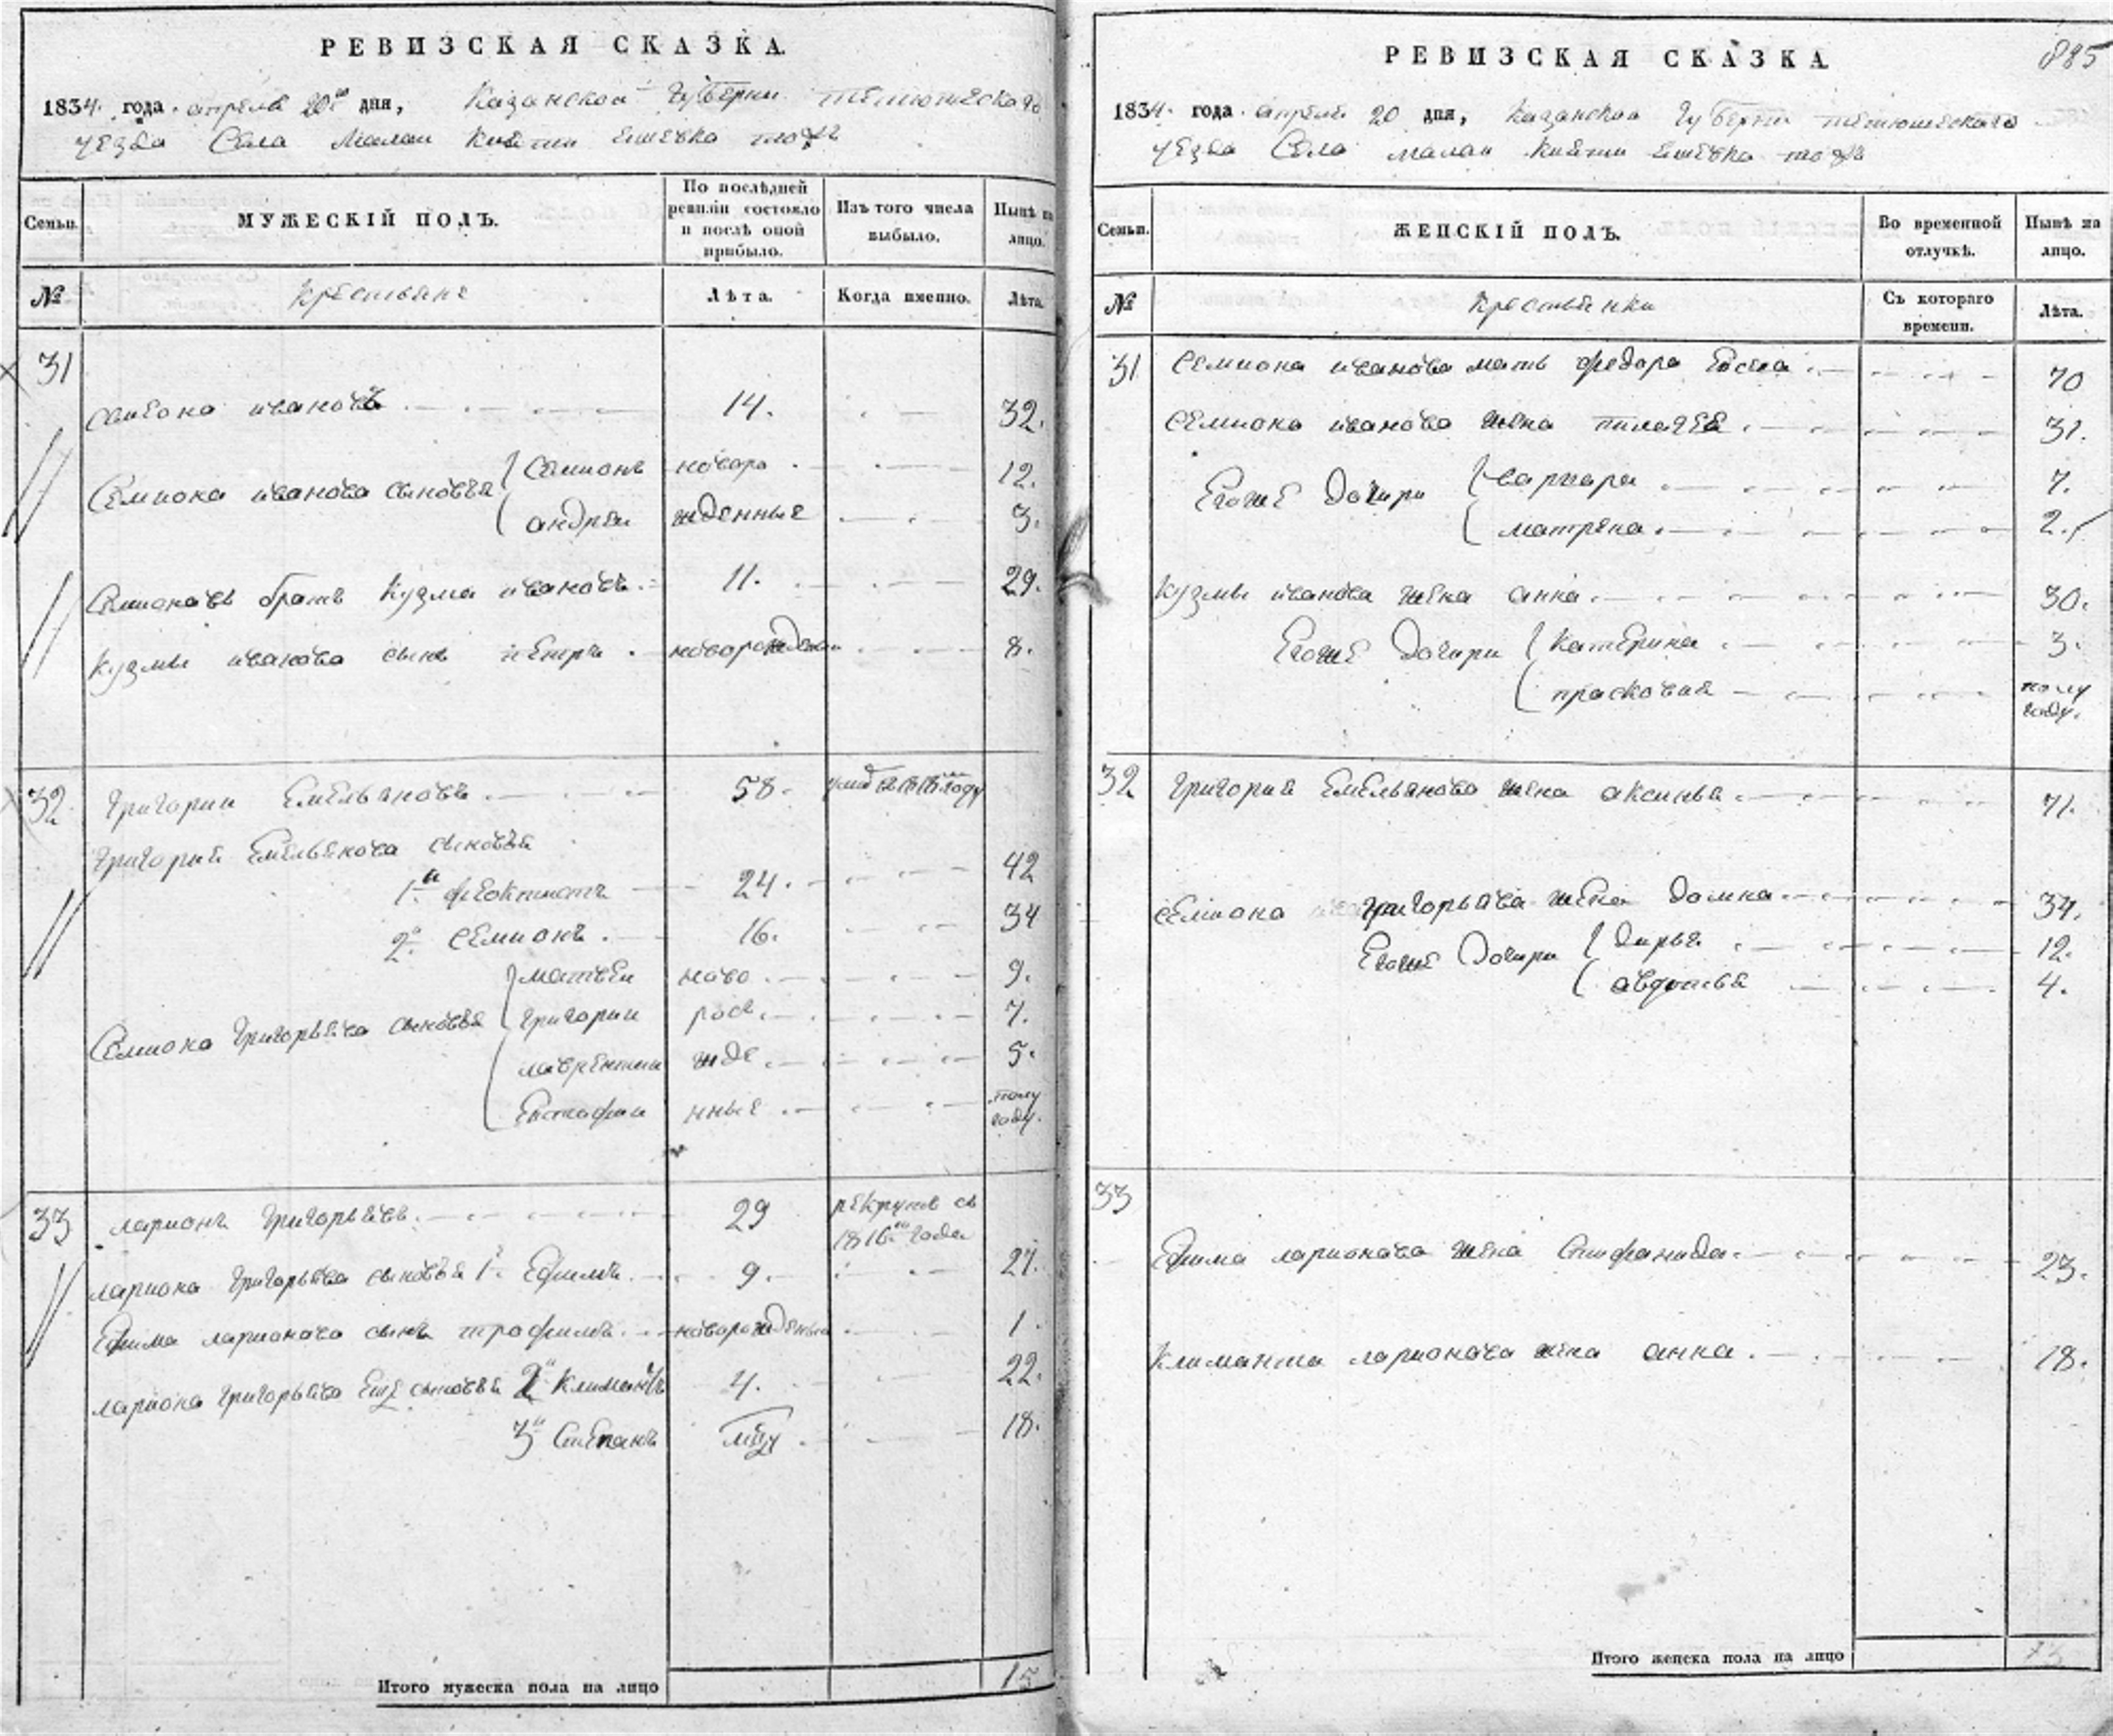 РЕВИЗСКАЯ СКАЗКА.
1834. года. апреля 20го дня, Казанской Губерни тетюшескаго
уезда Села Малаи Киятни Ешевка тожъ
Семьи.
МУЖЕСКІЙ ПОЛЪ.
По послѣдней ревизіи состояло и послѣ оной прибыло.
Изъ того числа выбыло.
Нынѣ на лицо.
№
Крестьяне
Лѣта.
Когда именно.
Лѣта.
31
Симеонъ ивановъ 14. 32.
Семиона иванова сыновья Семионъ новоро 12.
андреи жденные 3.
Семионовъ братъ Кузма ивановъ 11. 29.
Кузмы иванова сынъ петръ новорожденъ 8.
32. Григории Емельяновъ 58. умѣ въ 1818мъ году
Григория Емельянова сыновья
1й феоктистъ 24. 42
2й Семионъ. 16. 34
матвеи ново 9.
Семиона Григорьева сыновья Григории рож 7.
лаврентии жде 5.
Евстафии нные полу году.
33 ларионъ Григорьевъ. 29 рекрутъ съ 1816го года
лариона Григорьева сыновья 1й Ефимъ. 9. 27.
Ефима ларионова сынъ трофимъ. новорожденъ 1.
лариона Григорьева Еще сыновья 2й Климантъ 4. 22.
3й Степанъ мцу 18.
Итого мужеска пола на лицо 15
РЕВИЗСКАЯ СКАЗКА 885
1834. года. апреля 20 дня, Казанской Губерни тетюшескаго
уезда Села малаи Киятни Ешевка тожъ
Семьи.
ЖЕНСКІЙ ПОЛЪ.
Во временной отлучкѣ.
Нынѣ на лицо.
№
Крестьянки
Съ котораго времени.
Лѣта.
31 Семиона иванова мать федора Евсева 70
Семиона иванова жена пилагея 31.
Егоже Дочири варвара 7.
матрена 2.
Кузмы иванова жена анна 30.
Егоже Дочири Катерина 3.
прасковия полу году.
32 Григория Емельянова жена аксинья 71.
Семиона Григорьева жена Домна 34.
Егоже Дочири Дарья 12.
авдотья 4.
33
Ефима ларионова жена Стифанида 23.
Климанта ларионова жена анна. 18.
Итого женска пола на лицо